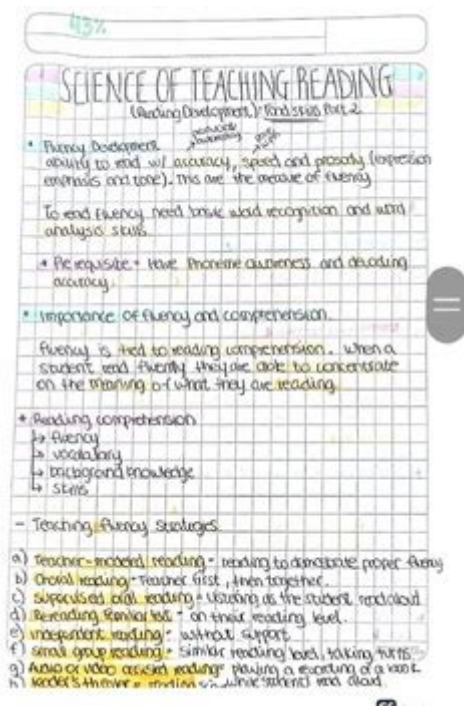 43%
SCIENCE OF TEACHING READING
(Reading Development): Found skills Part 2
• Fluency Development
ability to read w/ accuracy, speed and prosody (expression
emphasis and tone). This are the measure of fluency
To read fluency need basic word recognition and word
analysis skills
* Prerequisite - Have Phoneme awareness and decoding
accuracy.
• Importance of fluency and comprehension.
fluency is tied to reading comprehension. When a
student read fluently they are able to concentrate
on the meaning of what they are reading.
* Reading comprehension
↳ fluency
↳ vocabulary
↳ background knowledge
↳ skills
- Teaching fluency strategies
a) Teacher-modeled reading - reading to demonstrate proper fluency
b) Choral reading - Teacher first, then together.
c) supervised oral reading - Listening as the student read aloud
d) Rereading familiar text - on their reading level.
e) independent reading - without support.
f) small group reading - similar reading level, taking turns.
g) Audio or video assisted reading - playing a recording of a book
h) Reader's theater - while students read aloud.